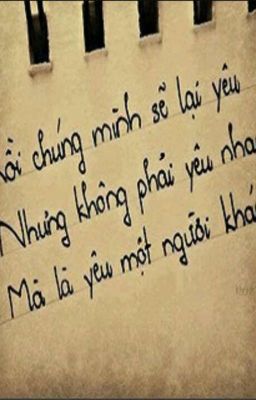 Rồi chúng mình sẽ lại yêu
Nhưng không phải yêu nhau
Mà là yêu một người khác